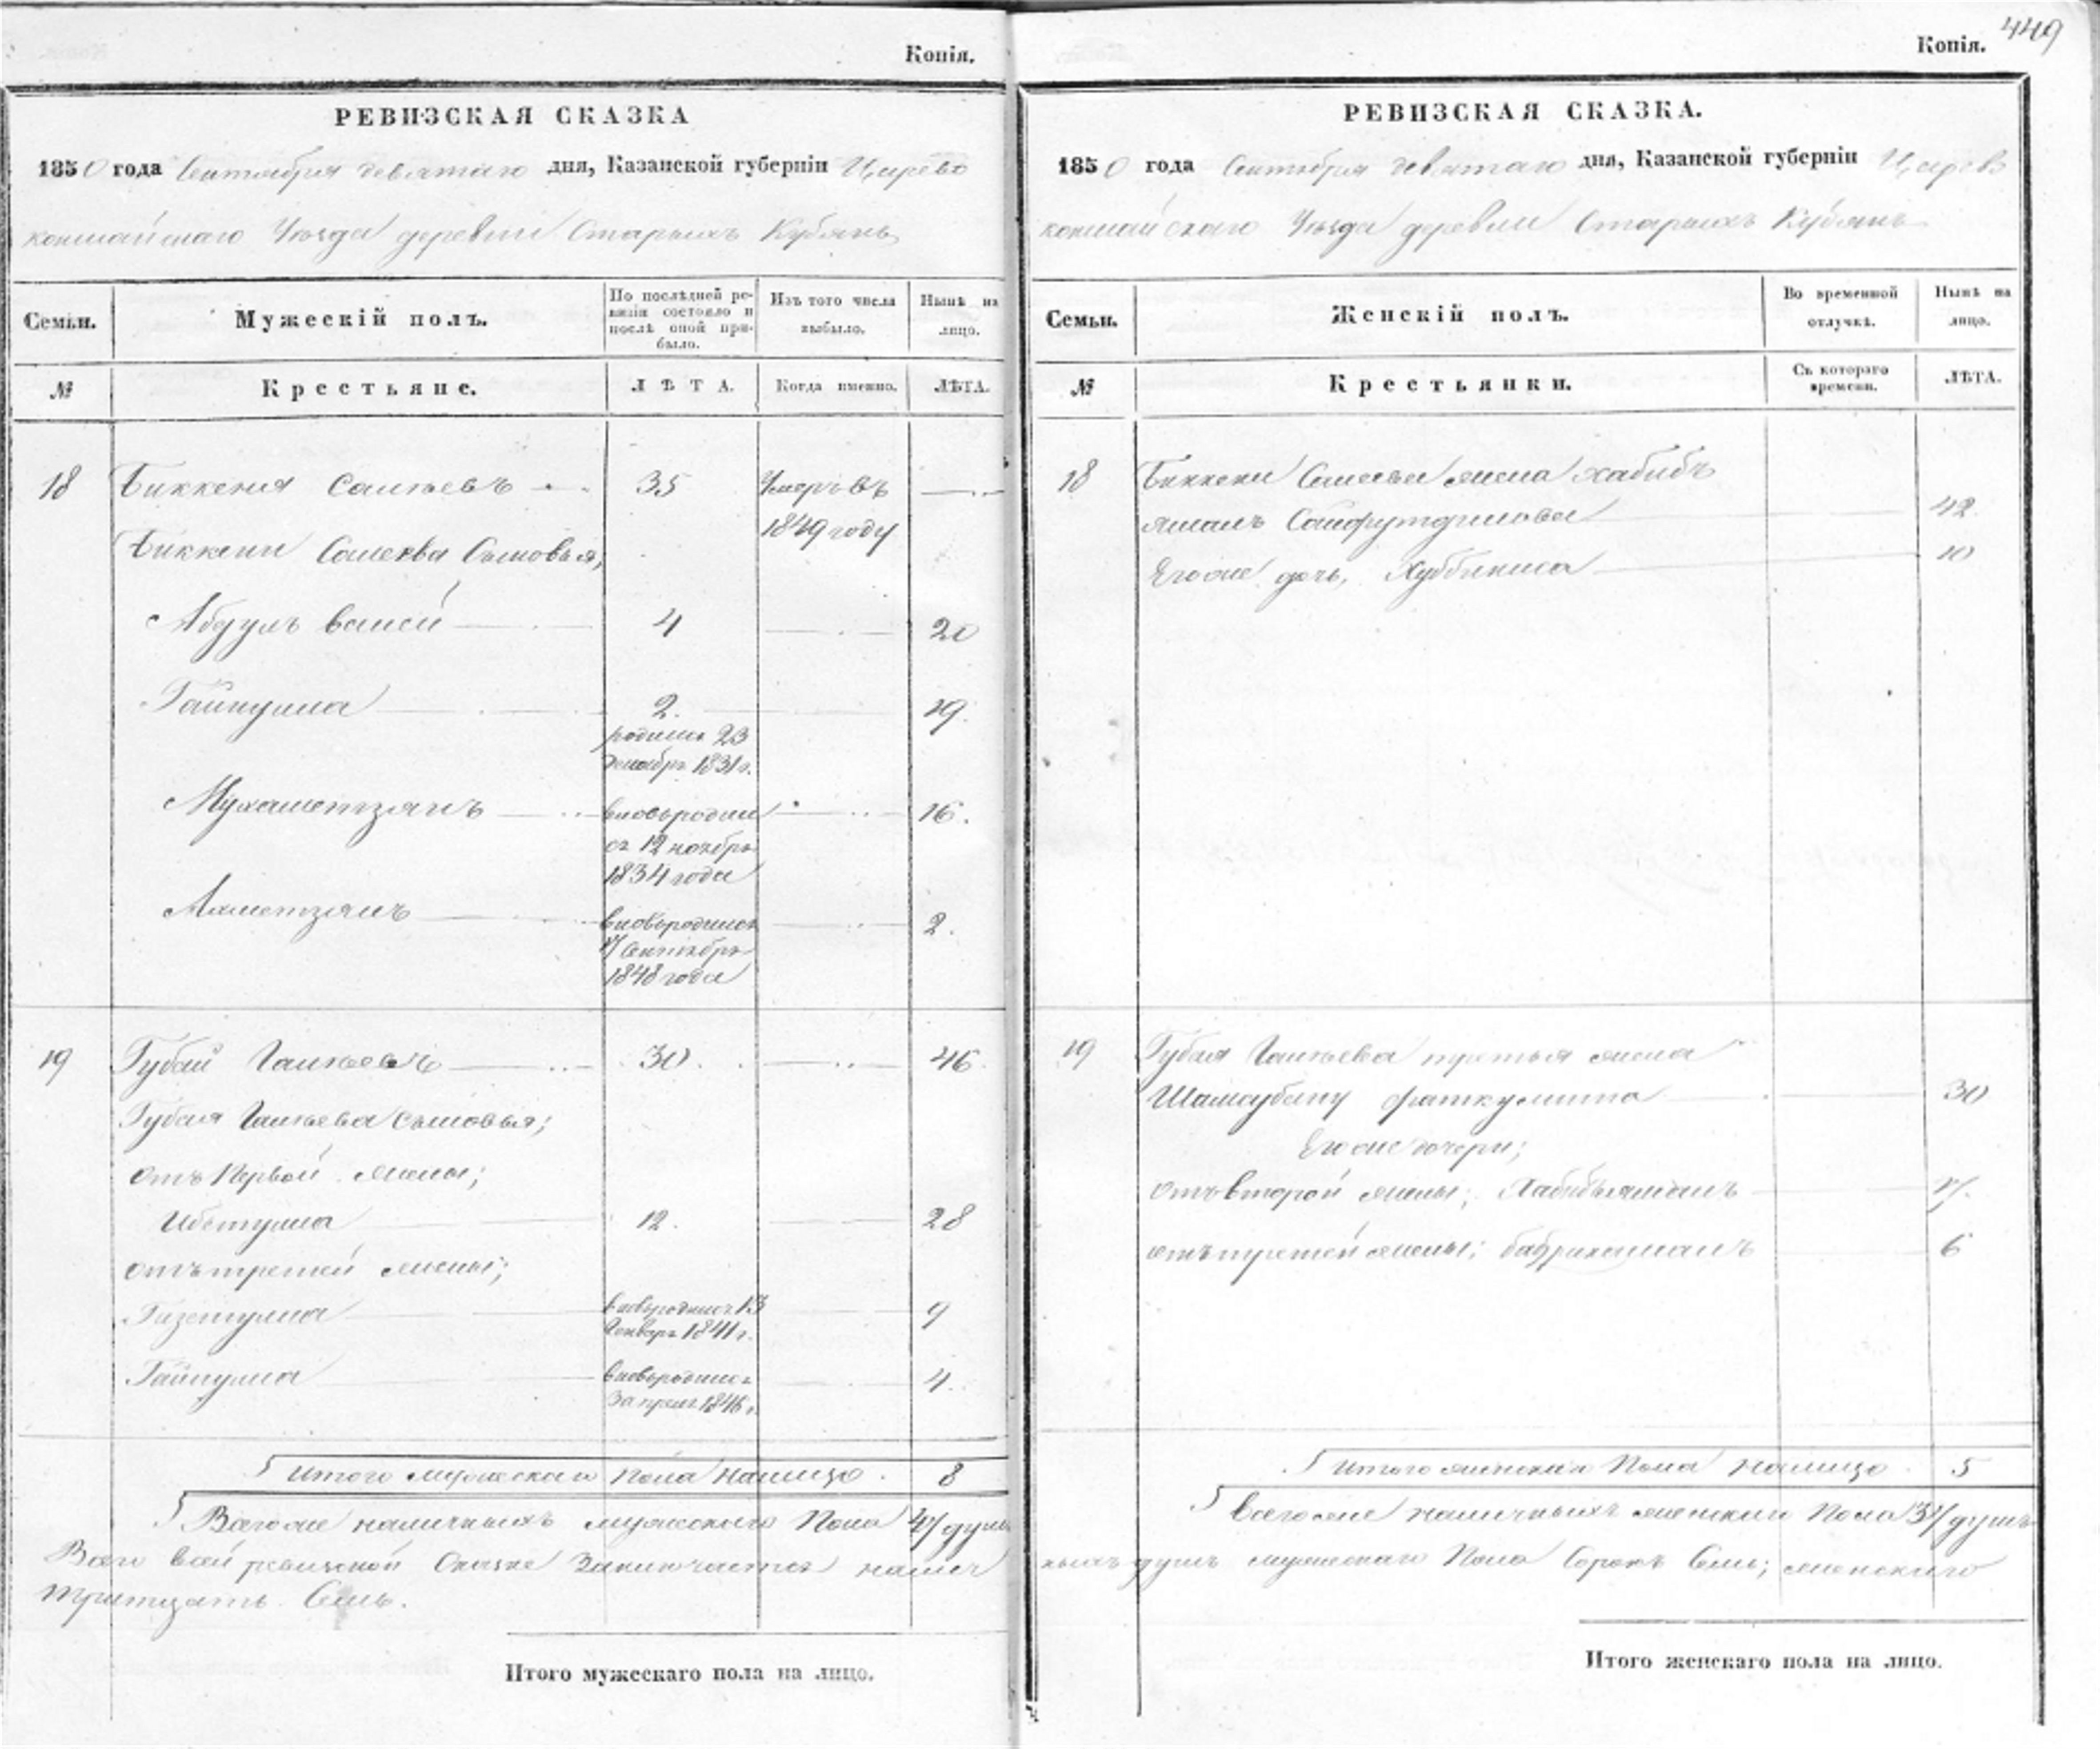 Копія.
РЕВИЗСКАЯ СКАЗКА
1850 года Сентября девятаго дня, Казанской губерніи Царево
кокшайскаго Уѣзда деревни Старыхъ Кубянъ
Семьи.
Мужескій полъ.
По послѣдней ре-
визіи состояло и
послѣ оной при-
было.
Изъ того числа
выбыло.
Нынѣ на
лицо.
№
Крестьяне.
ЛѢТА.
Когда именно.
ЛѢТА.
18 Биккеня 35 Умеръ въ
1849 году
Биккени Сыновья;
Абдулъ 4 20
Гайнулла 2. 19.
родился 23
декабръ 1831 г.
Мухаметзянъ вновь родил 16.
ся 12 ноябръ
1834 года
Ахметзянъ вновь родился 2.
17 Сентябръ
1848 года
19 Губай 30. 46.
Губая Сыновья;
отъ Первой жены;
Ибетулла 12. 28
отъ третей жены;
Гизетулла вновь родился 13 9
Генваръ 1841 г.
Гайнулла вновь родился 4.
3 апрель 1846 г.
Итого мужескаго Пола налицо. 8
Всего же наличныхъ мужескаго Пола 47 душъ
Всего въ сей ревизской Сказке Заключается налич
Тритцать Семь.
Итого мужескаго пола на лицо.
449
Копія.
РЕВИЗСКАЯ СКАЗКА.
1850 года Сентября девятаго дня, Казанской губерніи Царево
кокшайскаго Уѣзда деревни Старыхъ Кубянъ
Семьи.
Женскій полъ.
Во временной
отлучкѣ.
Нынѣ на
лицо.
№
Крестьянки.
Съ котораго
времени.
ЛѢТА.
18 Биккени жена Хабибъ
жамалъ Сайфутдинова 42.
Егоже дочь, Хуббиниса 10
19 Губая третья жена
Шамсубану Фаткуллина 30
Егоже дочери;
отъ второй жены; Хабибъямалъ 17.
отъ третей жены; 6
Итого женскаго Пола налицо. 5
Всегоже наличныхъ женскаго Пола 37 душъ
ныхъ душъ мужескаго Пола Сорокъ Семь; женскаго
Итого женскаго пола на лицо.